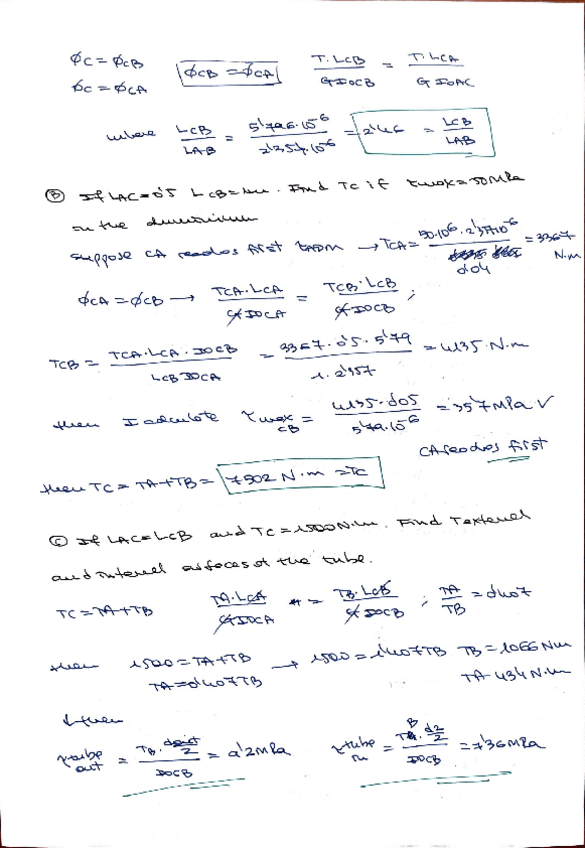 ϕC = ϕCB   ϕCB = ϕCA   T·LCB / G IOCB = T·LCA / G IOAC
ϕC = ϕCA
where LCB / LAB = 5'796·10⁻⁶ / 2'357·10⁻⁶ = 2'46 = LCB / LAB
Ⓑ If LAC=0'5 LCB=1m. Find TC if τmax=50MPa
in the
suppose CA reaches first → TCA = 50·10⁶·2'357·10⁻⁶ / 0'04 = 3367 N·m
ϕCA = ϕCB → TCA·LCA / G IOCA = TCB·LCB / G IOCB ;
TCB = TCA·LCA·IOCB / LCB IOCA = 3367·0'5·5'79 / 1·2'357 = 4135 N·m
then I calculate τmax CB = 4135·0'05 / 5'79·10⁻⁶ = 35'7 MPa ✓
CA reaches first
then TC = TA+TB = 7502 N·m = TC
Ⓒ If LAC=LCB and TC=1500N·m. Find τ external
and internal surfaces of the tube.
TC=TA+TB   TA·LCA / G IOCA = TB·LCB / G IOCB ; TA / TB = 0'407
then 1500 = TA+TB → 1500 = 1'407TB TB = 1066 Nm
TA=0'407TB   TA 434 N·m
then
τtube out = TB· / 2 / IOCB = 9'2MPa   τtube in = TB·d2/2 / IOCB = 7'36MPa